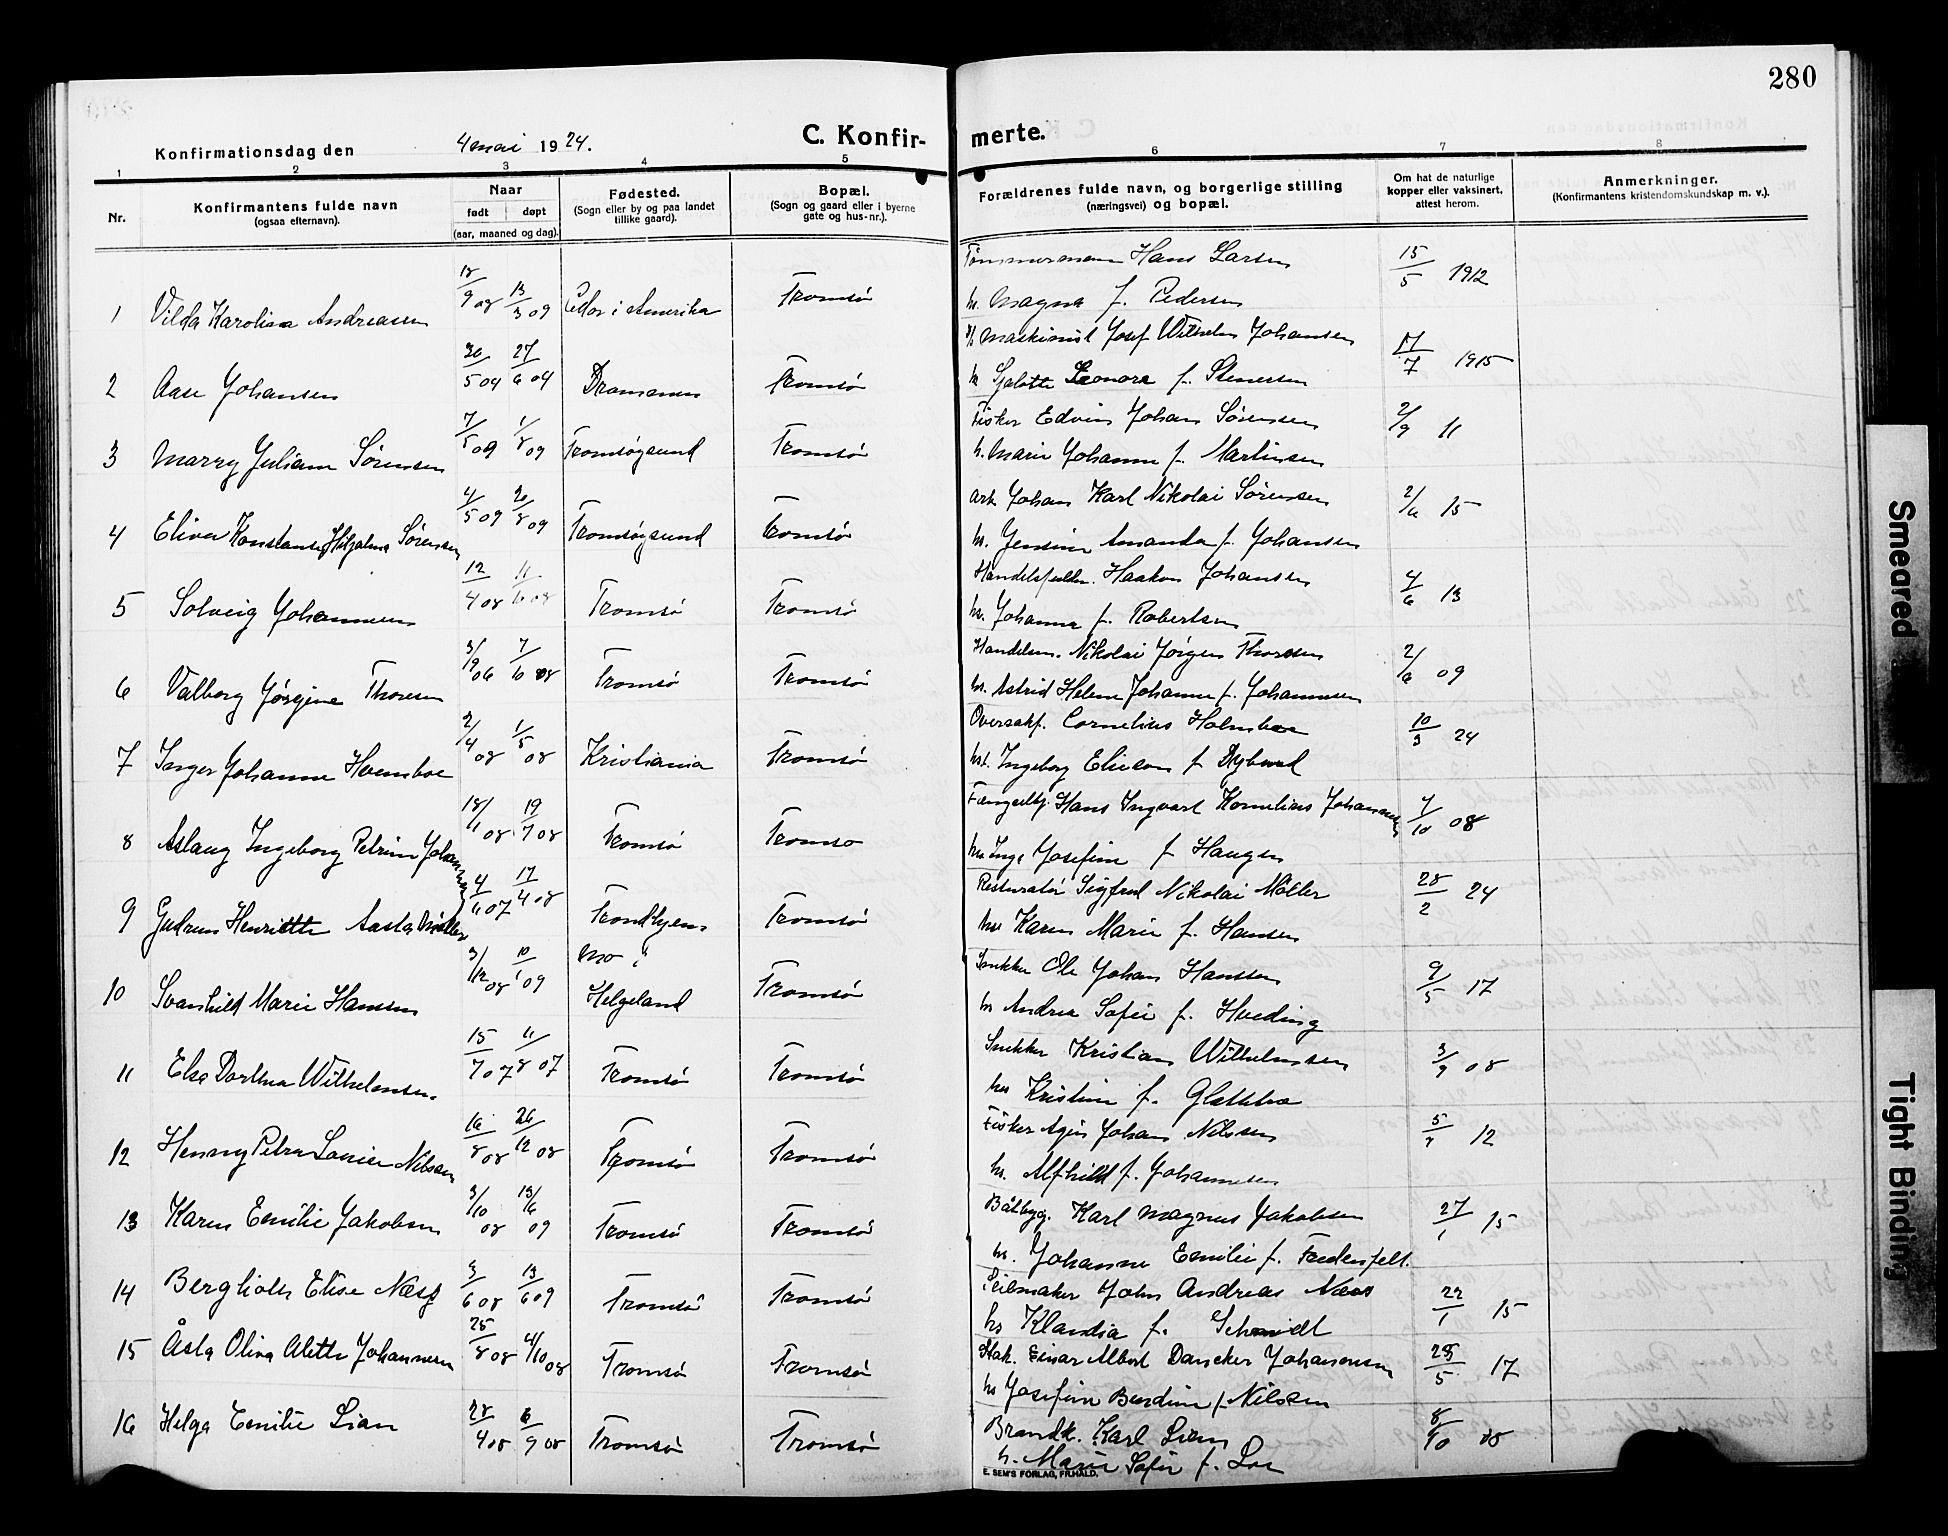 280
Konfirmationsdag den 4 mai 1924. C. Konfir- merte.
1 2 3 4 5 6 7 8
Nr. Konfirmantens fulde navn (ogsaa efternavn). Naar født døpt (aar, maaned og dag). Fødested. (Sogn eller by og paa landet tillike gaard). Bopæl. (Sogn og gaard eller i byerne gate og hus-nr.). Forældrenes fulde navn, og borgerlige stilling (næringsvei) og bopæl. Om hat de naturlige kopper eller vaksinert, attest herom. Anmerkninger. (Konfirmantens kristendomskundskap m. v.).
1 Vilda Karolina Andreasen 18/9 08 13/3 09 i Amerika Tromsø Tømmermann Hans Larsen 15/5 1912
h. Magna f. Pedersen
2 Aase Johansen 30/5 09 27/6 09 Drammen Tromsø Maskinist Josef Wilhelm Johansen 17/7 1915
h. Leonora f. Stenersen
3 Marry Juliane Sørensen 7/5 09 1/8 09 Tromsøysund Tromsø Fisker Edvin Johan Sørensen 2/9 11
h. Marie Johanne f. Martinsen
4 Konstanse Sørensen 4/5 09 20/8 09 Tromsøysund Tromsø arb Johan Karl Nikolai Sørensen 2/6 15
hr. Jensine Amanda f. Johansen
5 Solveig Johannesen 12/4 08 11/6 08 Tromsø Tromsø Haakon Johansen 4/6 13
hr. Johanna f. Robertsen
6 Valborg Jørgine Thoresen 3/9 06 7/6 08 Tromsø Tromsø Handelsm. Nikolai Jørgen Thoresen 2/6 09
hr. Astrid Helene Johanne f. Johannesen
7 Inger Johanne Holmboe 2/4 08 1/5 08 Kristiania Tromsø Oversakf. Cornelius Holmboe 10/3 24
hr. Ingeborg f. Dybvad
8 Aslaug Ingeborg Petrine Johannesen 18/1 08 19/7 08 Tromsø Tromsø Hans Ingvart Kornelius Johannesen 4/10 08
hr. Inga Josefine f Haugen
9 Gudrun Henriette Aasta Møller 4/11 07 17/4 08 Trondhjem Tromsø Resturatør Sigfred Nikolai Møller 28/2 24
hr Karen Marie f. Hansen
10 Svanhild Marie Hansen 3/12 08 10/1 09 Mo i Helgeland Tromsø Snekker Ole Johan Hanssen 9/5 17
hr Andrea Sofie f. Hveding
11 Else Dorthea Wilhelmsen. 15/7 07 11/8 07 Tromsø Tromsø Snekker Kristian Wilhelmsen 3/9 08
hr Kristine f.
12 Henny Petra Nilssen 16/8 08 26/12 08 Tromsø Tromsø Fisker Johan Nilssen 5/7 12
hr. Alfhild f. Johannesen
13 Karen Emilie Jakobsen 3/10 08 13/6 09 Tromsø Tromsø Båtbyg. Karl Magnus Jakobsen 27/1 15
hr. Johanne Emilie f. Fredenfelt.
14 Bergliot Elise Næss 3/6 08 13/6 09 Tromsø Tromsø Seilmaker John Andreas Næss 22/1 15
hr Klaudia f. Schmidt
15 Åsta Oliva Alette Johannesen 25/8 08 4/10 08 Tromsø Tromsø Einar Albert Dancker Johannesen 25/5 17
hr Josefine Berdine f. Nilsen
16 Helga Emilie Lian 28/4 08 6/9 08 Tromsø Tromsø Brandk. Karl Lian 8/10 08
h. Marie Sofie f.
E. SEM'S FORLAG, FR.HALD.
Smeared
Tight Binding